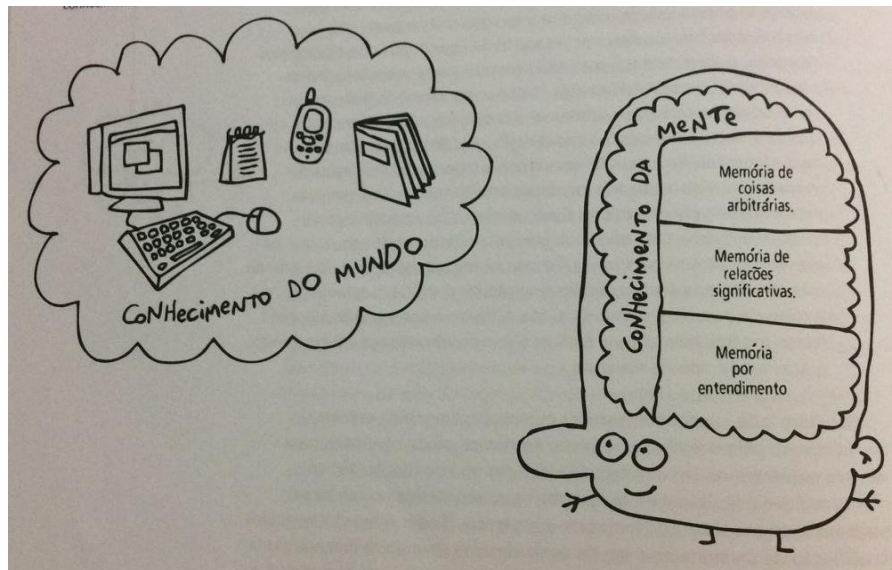 CONHECIMENTO DO MUNDO
CONHECIMENTO DA MENTE
Memória de
coisas
arbitrárias.
Memória de
relações
significativas.
Memória
por
entendimento